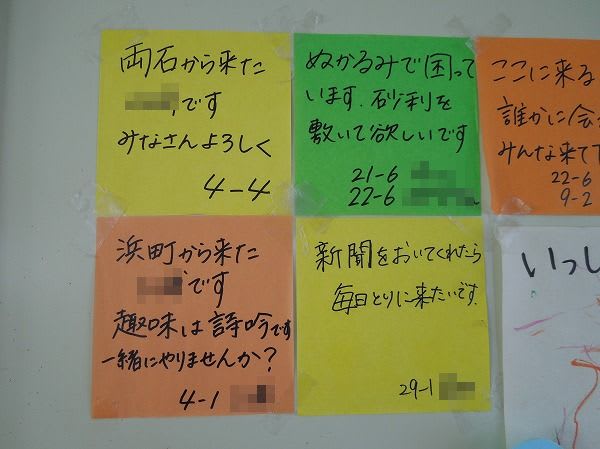 両石から来た
です
みなさんよろしく
4-4
ぬかるみで困って
います.砂利を
敷いて欲しいです
21-6
22-6
ここに来る
誰かに会
みんな来て下
22-6
9-2
浜町から来た
です
趣味は詩吟です
一緒にやりませんか?
4-1
新聞をおいてくれたら
毎日とりに来たいです.
29-1
いっし